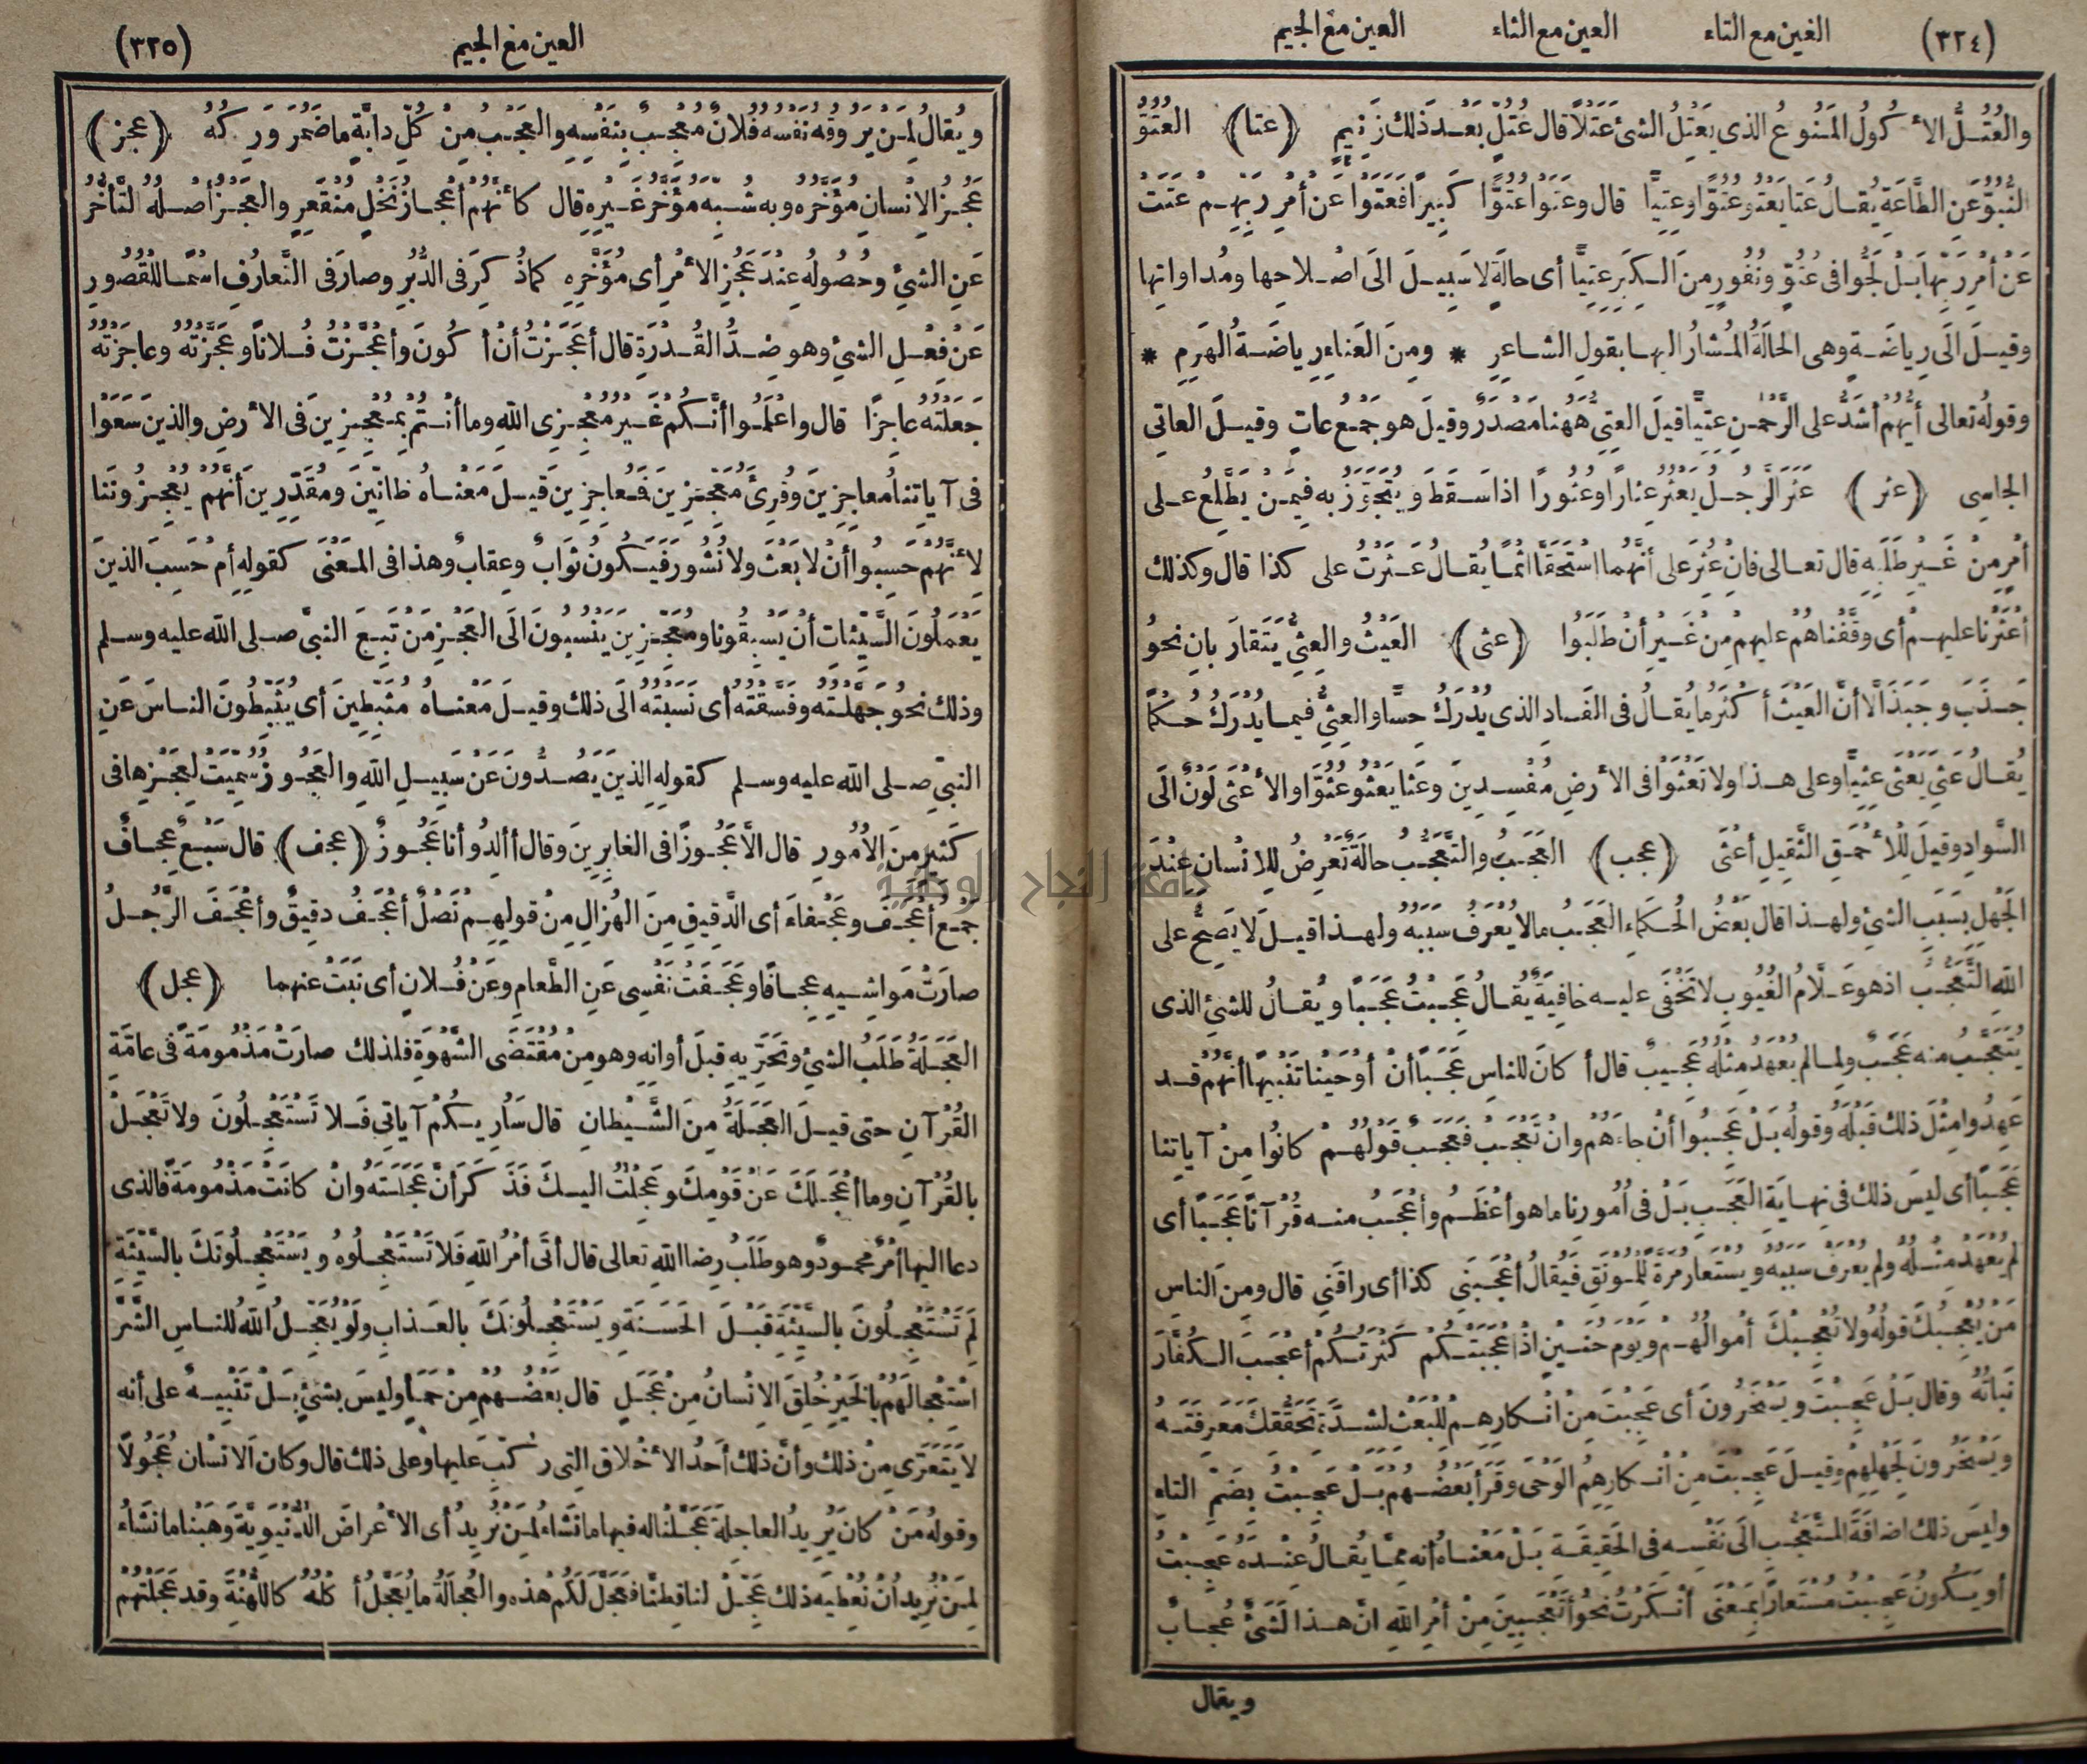 (٣٢٤) العين مع التاء العين مع الثاء العين مع الجيم
والعُتُلُّ الأَكُولُ المَنُوعُ الذى يَعْتِلُ الشئَ عَتَلاً قال عُتُلٍّ بَعْدَ ذلك زَنِيمٍ (عتا) العُتُوُّ
النُّبُوُّ عَنِ الطَّاعَةِ يُقالُ عَتَا يَعْتُو عُتُوًّا وعِتِيًّا قال وعَتَوْا عُتُوًّا كَبِيرًا فَعَتَوْا عَنْ أَمْرِ رَبِّهِمْ عَتَتْ
عَنْ أَمْرِ رَبِّهَا بَلْ لَجُّوا فى عُتُوٍّ ونُفُورٍ مِنَ الكِبَرِ عِتِيًّا أى حالَةٍ لا سَبِيلَ الَى اصْلاحِها ومُداواتِها
وقيلَ الَى رِياضَةٍ وهى الحالَةُ المُشارُ اليها بقولِ الشاعِرِ * ومِنَ العَناءِ رِياضَةُ الهَرِمِ *
وقولُه تعالى أَيُّهُمْ أَشَدُّ على الرَّحْمٰنِ عِتِيًّا قيلَ العِتِىُّ هٰهُنا مَصْدَرٌ وقيلَ هو جَمْعُ عاتٍ وقيلَ العاتِى
الجاسِى (عثر) عَثَرَ الرَّجُلُ يَعْثُرُ عِثارًا وعُثُورًا اذا سَقَطَ ويُتَجَوَّزُ به فيمَنْ يَطَّلِعُ على
أَمْرٍ مِنْ غَيْرِ طَلَبِه قال تعالى فانْ عُثِرَ على أَنَّهُما اسْتَحَقَّا اثْمًا يُقالُ عَثَرْتُ على كذا قال وكذلك
أَعْثَرْنا عليهمْ أى وقَّفْناهُمْ عليهِمْ مِنْ غَيْرِ أنْ طَلَبُوا (عثى) العَيْثُ والعِثِىُّ يَتَقارَبانِ نحوُ
جَذَبَ وجَبَذَ الَّا أنَّ العَيْثَ أكْثَرُ ما يُقالُ فى الفَسادِ الذى يُدْرَكُ حِسًّا والعِثِىُّ فيما يُدْرَكُ حُكْمًا
يُقالُ عَثِىَ يَعْثَى عِثِيًّا وعلى هذا ولا تَعْثَوْا فى الأرضِ مُفْسِدِينَ وعَثا يَعْثُو عُثُوًّا والأَعْثَى لَوْنٌ الَى
السَّوادِ وقيلَ لِلْأَحْمَقِ الثَّقِيلِ أَعْثَى (عجب) العَجَبُ والتَّعَجُّبُ حالَةٌ تَعْرِضُ للانْسانِ عِنْدَ
الجَهْلِ بسَبَبِ الشئِ ولهذا قال بَعْضُ الحُكَماءِ العَجَبُ ما لا يُعْرَفُ سَبَبُهُ ولهذا قيلَ لا يَصِحُّ على
اللهِ التَّعَجُّبُ اذ هو عَلَّامُ الغُيُوبِ لا تَخْفَى عليه خافِيَةٌ يُقالُ عَجِبْتُ عَجَبًا ويُقالُ للشئِ الذى
يُتَعَجَّبُ منه عَجَبٌ ولِما لم يُعْهَدْ مِثْلُه عَجِيبٌ قال أكانَ للناسِ عَجَبًا أنْ أوْحَيْنا تَنْبِيهًا أنَّهُمْ قد
عَهِدُوا مِثْلَ ذلك قَبْلَهُ وقولُه بَلْ عَجِبُوا أنْ جاءَهُمْ وانْ تَعْجَبْ فَعَجَبٌ قَوْلُهُمْ كانُوا مِنْ آياتِنا
عَجَبًا أى ليسَ ذلك فى نهايَةِ العَجَبِ بَلْ فى أُمُورِنا ما هو أعْظَمُ وأعْجَبُ منه قُرْآنًا عَجَبًا أى
لم يُعْهَدْ مِثْلُهُ ولم يُعْرَفْ سَبَبُه ويُسْتَعارُ مَرَّةً لِلْمُونَقِ فيُقالُ أعْجَبَنِى كذا أى راقَنِى قال ومِنَ الناسِ
مَنْ يُعْجِبُكَ قولُه ولا تُعْجِبْكَ أموالُهُمْ ويومَ حُنَيْنٍ اذْ أعْجَبَتْكُمْ كَثْرَتُكُمْ أعْجَبَ الكُفَّارَ
نَباتُهُ وقال بَلْ عَجِبْتَ ويَسْخَرُونَ أى عَجِبْتَ مِنْ انْكارِهِمْ لِلْبَعْثِ لِشِدَّةِ تَحَقُّقِكَ مَعْرِفَتَهُ
ويَسْخَرُونَ لِجَهْلِهِمْ وقيلَ عَجِبْتَ مِنْ انْكارِهِمُ الوَحْىَ وقَرَأَ بَعْضُهُمْ بَلْ عَجِبْتُ بِضَمِّ التاءِ
وليسَ ذلك اضافَةَ المُتَعَجِّبِ الَى نَفْسِه فى الحَقِيقَةِ بَلْ مَعْناهُ أنه مِمَّا يُقالُ عِنْدَهُ عَجِبْتُ
أو يَكُونُ عَجِبْتُ مُسْتَعارًا بِمَعْنَى أنْكَرْتُ نحوُ أتَعْجَبِينَ مِنْ أمْرِ اللهِ انَّ هذا لَشَىْءٌ عُجابٌ
ويقال
العين مع الجيم (٣٢٥)
ويُقالُ لِمَنْ يَرُوقُه نَفْسُه فُلانٌ مُعْجَبٌ بِنَفْسِه والعَجْبُ مِنْ كُلِّ دابَّةٍ ما ضَمُرَ وَرِكُهُ (عجز)
عَجُزُ الانْسانِ مُؤَخَّرُه وبه شُبِّهَ مُؤَخَّرُ غَيْرِه قال كأنَّهُمْ أعْجازُ نَخْلٍ مُنْقَعِرٍ والعَجْزُ أصْلُهُ التَّأَخُّرُ
عَنِ الشئِ وحُصُولُه عِنْدَ عَجُزِ الأمْرِ أى مُؤَخَّرِهِ كما ذُكِرَ فى الدُّبُرِ وصارَ فى التَّعارُفِ اسْمًا للقُصُورِ
عَنْ فِعْلِ الشئِ وهو ضِدُّ القُدْرَةِ قال أعَجَزْتُ أنْ أكُونَ وأعْجَزْتُ فُلانًا وعَجَّزْتُه وعاجَزْتُه
جَعَلْتُه عاجِزًا قال واعْلَمُوا أنَّكُمْ غَيْرُ مُعْجِزِى اللهِ وما أنْتُمْ بِمُعْجِزِينَ فى الأرضِ والذينَ سَعَوْا
فى آياتِنا مُعاجِزِينَ وقُرِئَ مُعَجِّزِينَ فَمُعاجِزِينَ قيلَ مَعْناهُ ظانِّينَ ومُقَدِّرِينَ أنَّهُمْ يُعْجِزُونَنا
لأنَّهُمْ حَسِبُوا أنْ لا بَعْثَ ولا نُشُورَ فَيَكُونَ ثَوابٌ وعِقابٌ وهذا فى المَعْنَى كقولِه أمْ حَسِبَ الذينَ
يَعْمَلُونَ السَّيِّئاتِ أنْ يَسْبِقُونا ومُعَجِّزِينَ يَنْسُبُونَ الَى العَجْزِ مَنْ تَبِعَ النبىَّ صلى الله عليه وسلم
وذلك نحوُ جَهَّلْتُه وفَسَّقْتُه أى نَسَبْتُه الَى ذلك وقيلَ مَعْناهُ مُثَبِّطِينَ أى يُثَبِّطُونَ الناسَ عَنِ
النبىِّ صلى الله عليه وسلم كقولِه الذِينَ يَصُدُّونَ عَنْ سَبِيلِ اللهِ والعَجُوزُ سُمِّيَتْ لِعَجْزِها فى
كَثِيرٍ مِنَ الأُمُورِ قال الَّا عَجُوزًا فى الغابِرِينَ وقال أألِدُ وأنا عَجُوزٌ (عجف) قال سَبْعٌ عِجافٌ
جَمْعُ أعْجَفَ وعَجْفاءَ أى الدَّقِيقِ مِنَ الهُزالِ مِنْ قولِهِمْ نَصْلٌ أعْجَفُ دقِيقٌ وأعْجَفَ الرَّجُلُ
صارَتْ مَواشِيهِ عِجافًا وعَجَفَتْ نَفْسِى عَنِ الطَّعامِ وعَنْ فُلانٍ أى نَبَتْ عنهما (عجل)
العَجَلَةُ طَلَبُ الشئِ وتَحَرِّيهِ قبلَ أوانِه وهو مِنْ مُقْتَضَى الشَّهْوَةِ فلذلك صارَتْ مَذْمُومَةً فى عامَّةِ
القُرْآنِ حتى قيلَ العَجَلَةُ مِنَ الشَّيْطانِ قال سَأُرِيكُمْ آياتِى فَلا تَسْتَعْجِلُونَ ولا تَعْجَلْ
بالقُرْآنِ وما أعْجَلَكَ عَنْ قَوْمِكَ وعَجِلْتُ اليكَ فَذَكَرَ أنَّ عَجَلَتَه وانْ كانَتْ مَذْمُومَةً فالذى
دعا اليها أمْرٌ محمودٌ وهو طَلَبُ رِضا اللهِ تعالى قال أتَى أمْرُ اللهِ فَلا تَسْتَعْجِلُوهُ ويَسْتَعْجِلُونَكَ بالسَّيِّئَةِ
لِمَ تَسْتَعْجِلُونَ بالسَّيِّئَةِ قَبْلَ الحَسَنَةِ ويَسْتَعْجِلُونَكَ بالعَذابِ ولَوْ يُعَجِّلُ اللهُ للناسِ الشَّرَّ
اسْتِعْجالَهُمْ بالخَيْرِ خُلِقَ الانْسانُ مِنْ عَجَلٍ قال بَعْضُهُمْ مِنْ حَمَإٍ وليسَ بشئٍ بَلْ تَنْبِيهٌ على أنه
لا يَتَعَرَّى مِنْ ذلك وأنَّ ذلك أحَدُ الأخْلاقِ التى رُكِّبَ عليها وعلى ذلك قال وكان الانْسانُ عَجُولًا
وقولُه مَنْ كان يُرِيدُ العاجِلَةَ عَجَّلْنا له فيها ما نَشاءُ لِمَنْ نُرِيدُ أى الأعْراضَ الدُّنْيَوِيَّةَ وهَبْنا ما نَشاءُ
لِمَنْ نُرِيدُ أنْ نُعْطِيَه ذلك عَجِّلْ لنا قِطَّنا فعَجَّلَ لَكُمْ هٰذه والعُجالَةُ ما يُعَجَّلُ أكْلُهُ كاللُّهْنَةِ وقد عَجَّلْتُهُمْ
جامعة النجاح الوطنية